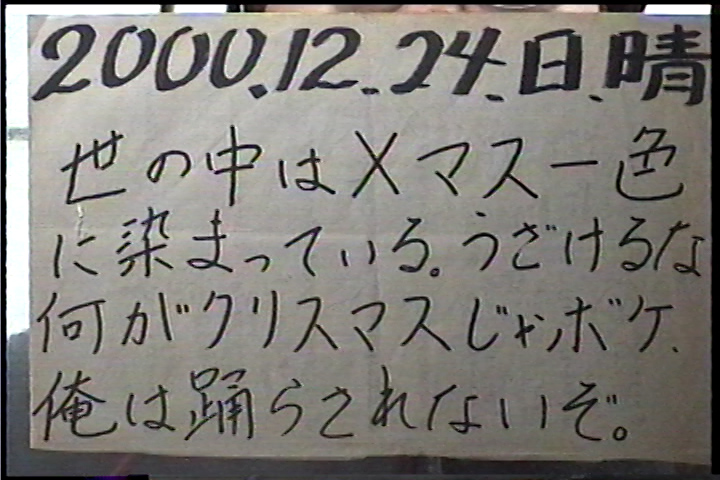 2000.12.24.日.晴
世の中はXマス一色
に染まっている。うざけるな
何がクリスマスじゃボケ.
俺は踊らされないぞ。